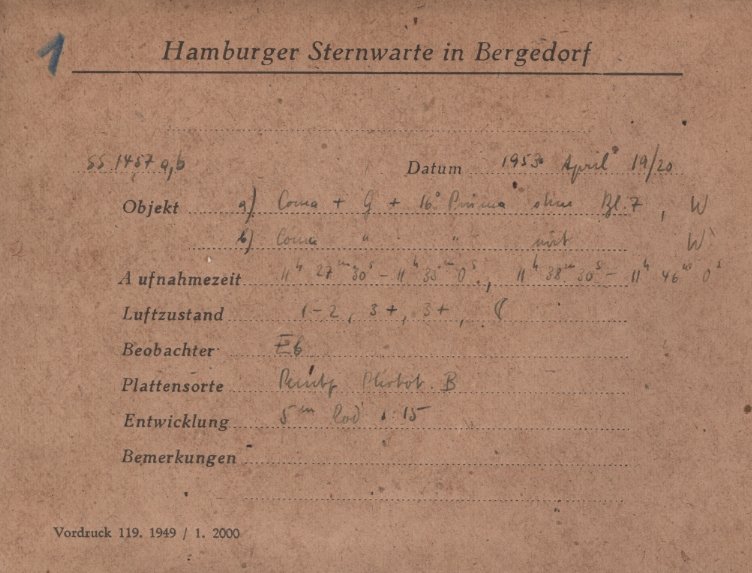 1
Hamburger Sternwarte in Bergedorf
SS 1457 a,b Datum 1953 April 19/20
Objekt a) Coma + G + 16° Prisma ohne Bl. 7, W
b) Coma " " mit W
Aufnahmezeit 11h 27m 30s – 11h 35m 0s, 11h 38m 30s – 11h 46m 0s
Luftzustand 1–2, 3+, 3+,
Beobachter
Plattensorte B
Entwicklung 5m Rod 1:15
Bemerkungen
Vordruck 119. 1949 / 1. 2000